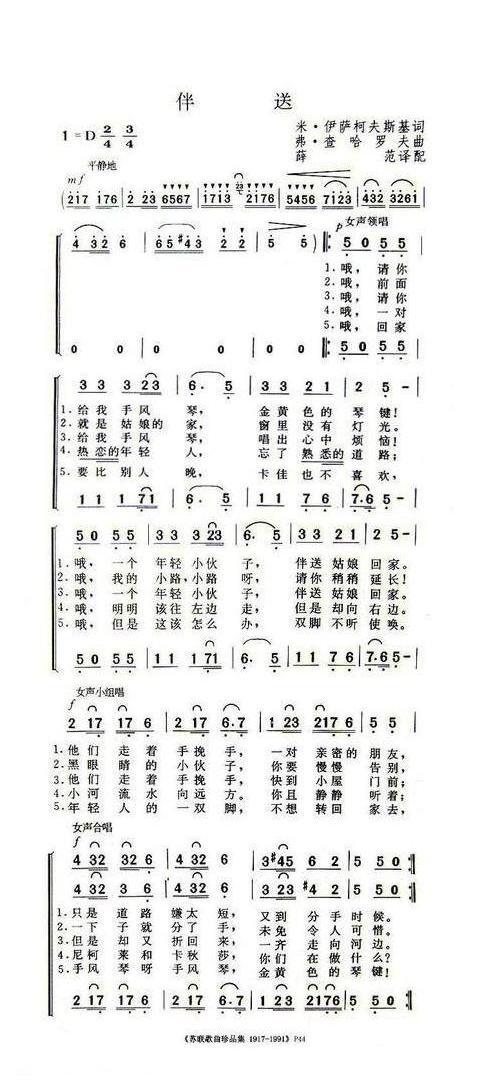 伴 送
1=D 2/4 3/4
米·伊萨柯夫斯基词
弗·查哈罗夫曲
薛 范译配
平静地
mf
(217 176 | 2 23 6567 | 1713 2176 | 5456 7123 | 432 3261 |
女声领唱
p
4 32 6 | 65 #43 2 2 | 5 5 ) | 5 0 5 5 |
1.哦，请你
2.哦，前面
3.哦，请你
4.哦，一对
5.哦，回家
0 0 | 0 0 | 0 0 | 5 0 5 5 |
3 3 3 23 | 6· 5 | 3 3 2 1 | 2 5 - |
1.给我手风琴，金黄色的琴键！
2.就是姑娘的家，窗里没有灯光。
3.给我手风琴，唱出心中烦恼！
4.热恋的年轻人，忘了熟悉的道路；
5.要比别人晚，卡佳也不喜欢，
1 1 1 71 | 6· 5 | 1 1 7 6 | 7·6 5 - |
5 0 5 5 | 3 3 3 23 | 6· 5 | 3 3 2 1 | 2 5 - |
1.哦，一个年轻小伙子，伴送姑娘回家。
2.哦，我的小路，小路呀，请你稍稍延长！
3.哦，一个年轻小伙子，伴送姑娘回家。
4.哦，明明该往左边走，但是却向右边。
5.哦，但是这该怎么办，双脚不听使唤。
5 0 5 5 | 1 1 1 71 | 6· 5 | 1 1 7 6 | 7·6 5 - |
女声小组唱
f
2 17 17 6 | 2 17 6·7 | 1 23 2176 | 5 5 |
1.他们走着手挽手，一对亲密的朋友，
2.黑眼睛的小伙子，你要慢慢告别，
3.他们走着手挽手，快到小屋门前；
4.小河流水向远方。你且静静听着；
5.年轻人的一双脚，不想转回家去，
女声合唱
f
4 32 32 6 | 4 32 6 | 3 #45 6 2 | 5 5 0 |
4 32 32 6 | 4 32 6 | 3 23 #4 3 | 5 5 0 |
1.只是道路嫌太短，又到分手时候。
2.一下子就分了手，未免令人可惜。
3.但是却又折回来，一齐走向河边。
4.尼柯莱和卡秋莎，你们在做什么？
5.手风琴呀手风琴，金黄色的琴键！
2 17 17 6 | 2 17 6·7 | 1 23 2176 | 5 5 0 |
《苏联歌曲珍品集 1917-1991》P44